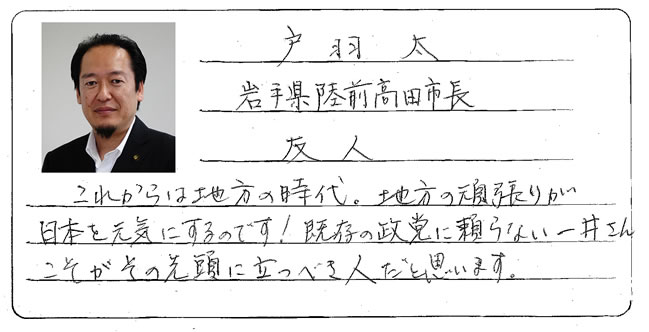 戸羽 太
岩手県陸前高田市長
友人
これからは地方の時代。地方の頑張りが
日本を元気にするのです！既存の政党に頼らない一井さん
こそがその先頭に立つべき人だと思います。